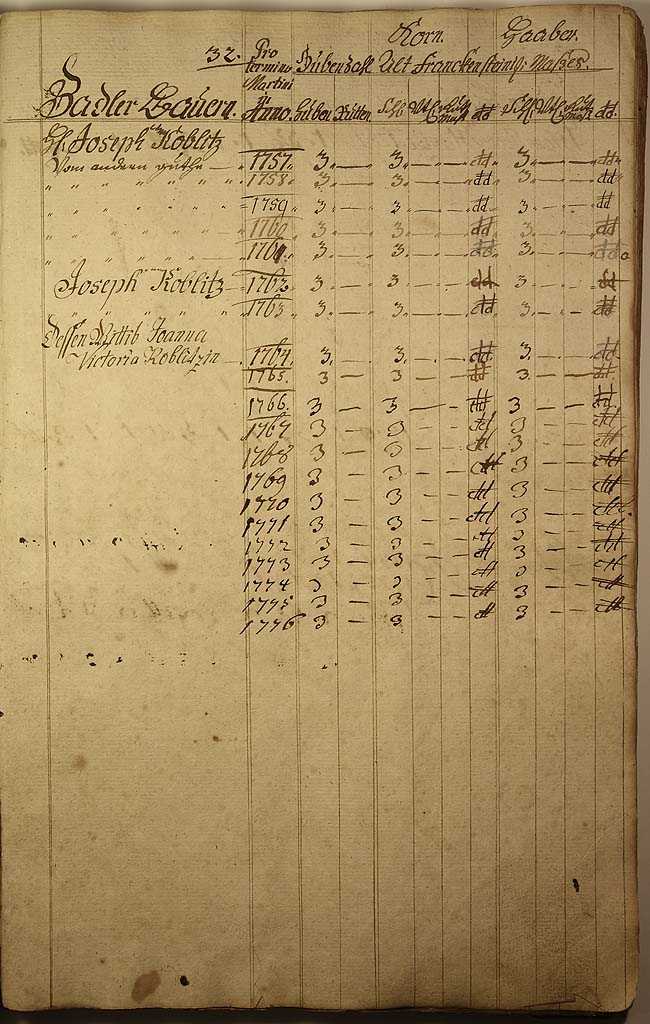 Korn. Haaber.
32. Pro termino Martini Hubenzahl Alt Franckensteinl. Maßes.
Sadler Bauern. Anno. Huben Rutten Schl. dd Schl. dd.
Joseph Koblitz
Vom andern guthe — 1757. 3. — 3. — — dd 3. — — dd
" " " " " " 1758. 3. — 3. — — dd 3. — — dd
" " " " " 1759 3. — 3 — — dd 3. — — dd
" " " " " " 1760 3. — 3. — — dd 3. — — dd
" " " " " " 1761. 3. — 3. — — dd 3. — — dd
Joseph Koblitz — 1762. 3. — 3. — — dd 3. — — dd
" " " " " " 1763 3. — 3. — — dd 3. — — dd
Dessen Wittib Joanna
Victoria Koblitzin — 1764. 3. — 3. — — dd 3. — — dd
1765. 3 — 3 — — dd 3. — — dd.
1766. 3 — 3 — — dd 3 — — dd.
1767 3 — 3 — — dd 3 — — dd
1768 3 — 3 — — dd 3 — — dd
1769 3 — 3 — — dd 3 — — dd
1770 3 — 3 — — dd 3 — — dd
1771 3 — 3 — — dd 3 — — dd.
1772 3 — 3 — — dd 3 — — dd
1773 3 — 3 — — dd 3 — — dd
1774 3 — 3 — — dd 3 — — dd
1775 3 — 3 — — dd 3 — — dd
1776 3 — 3 — — dd 3 — — dd